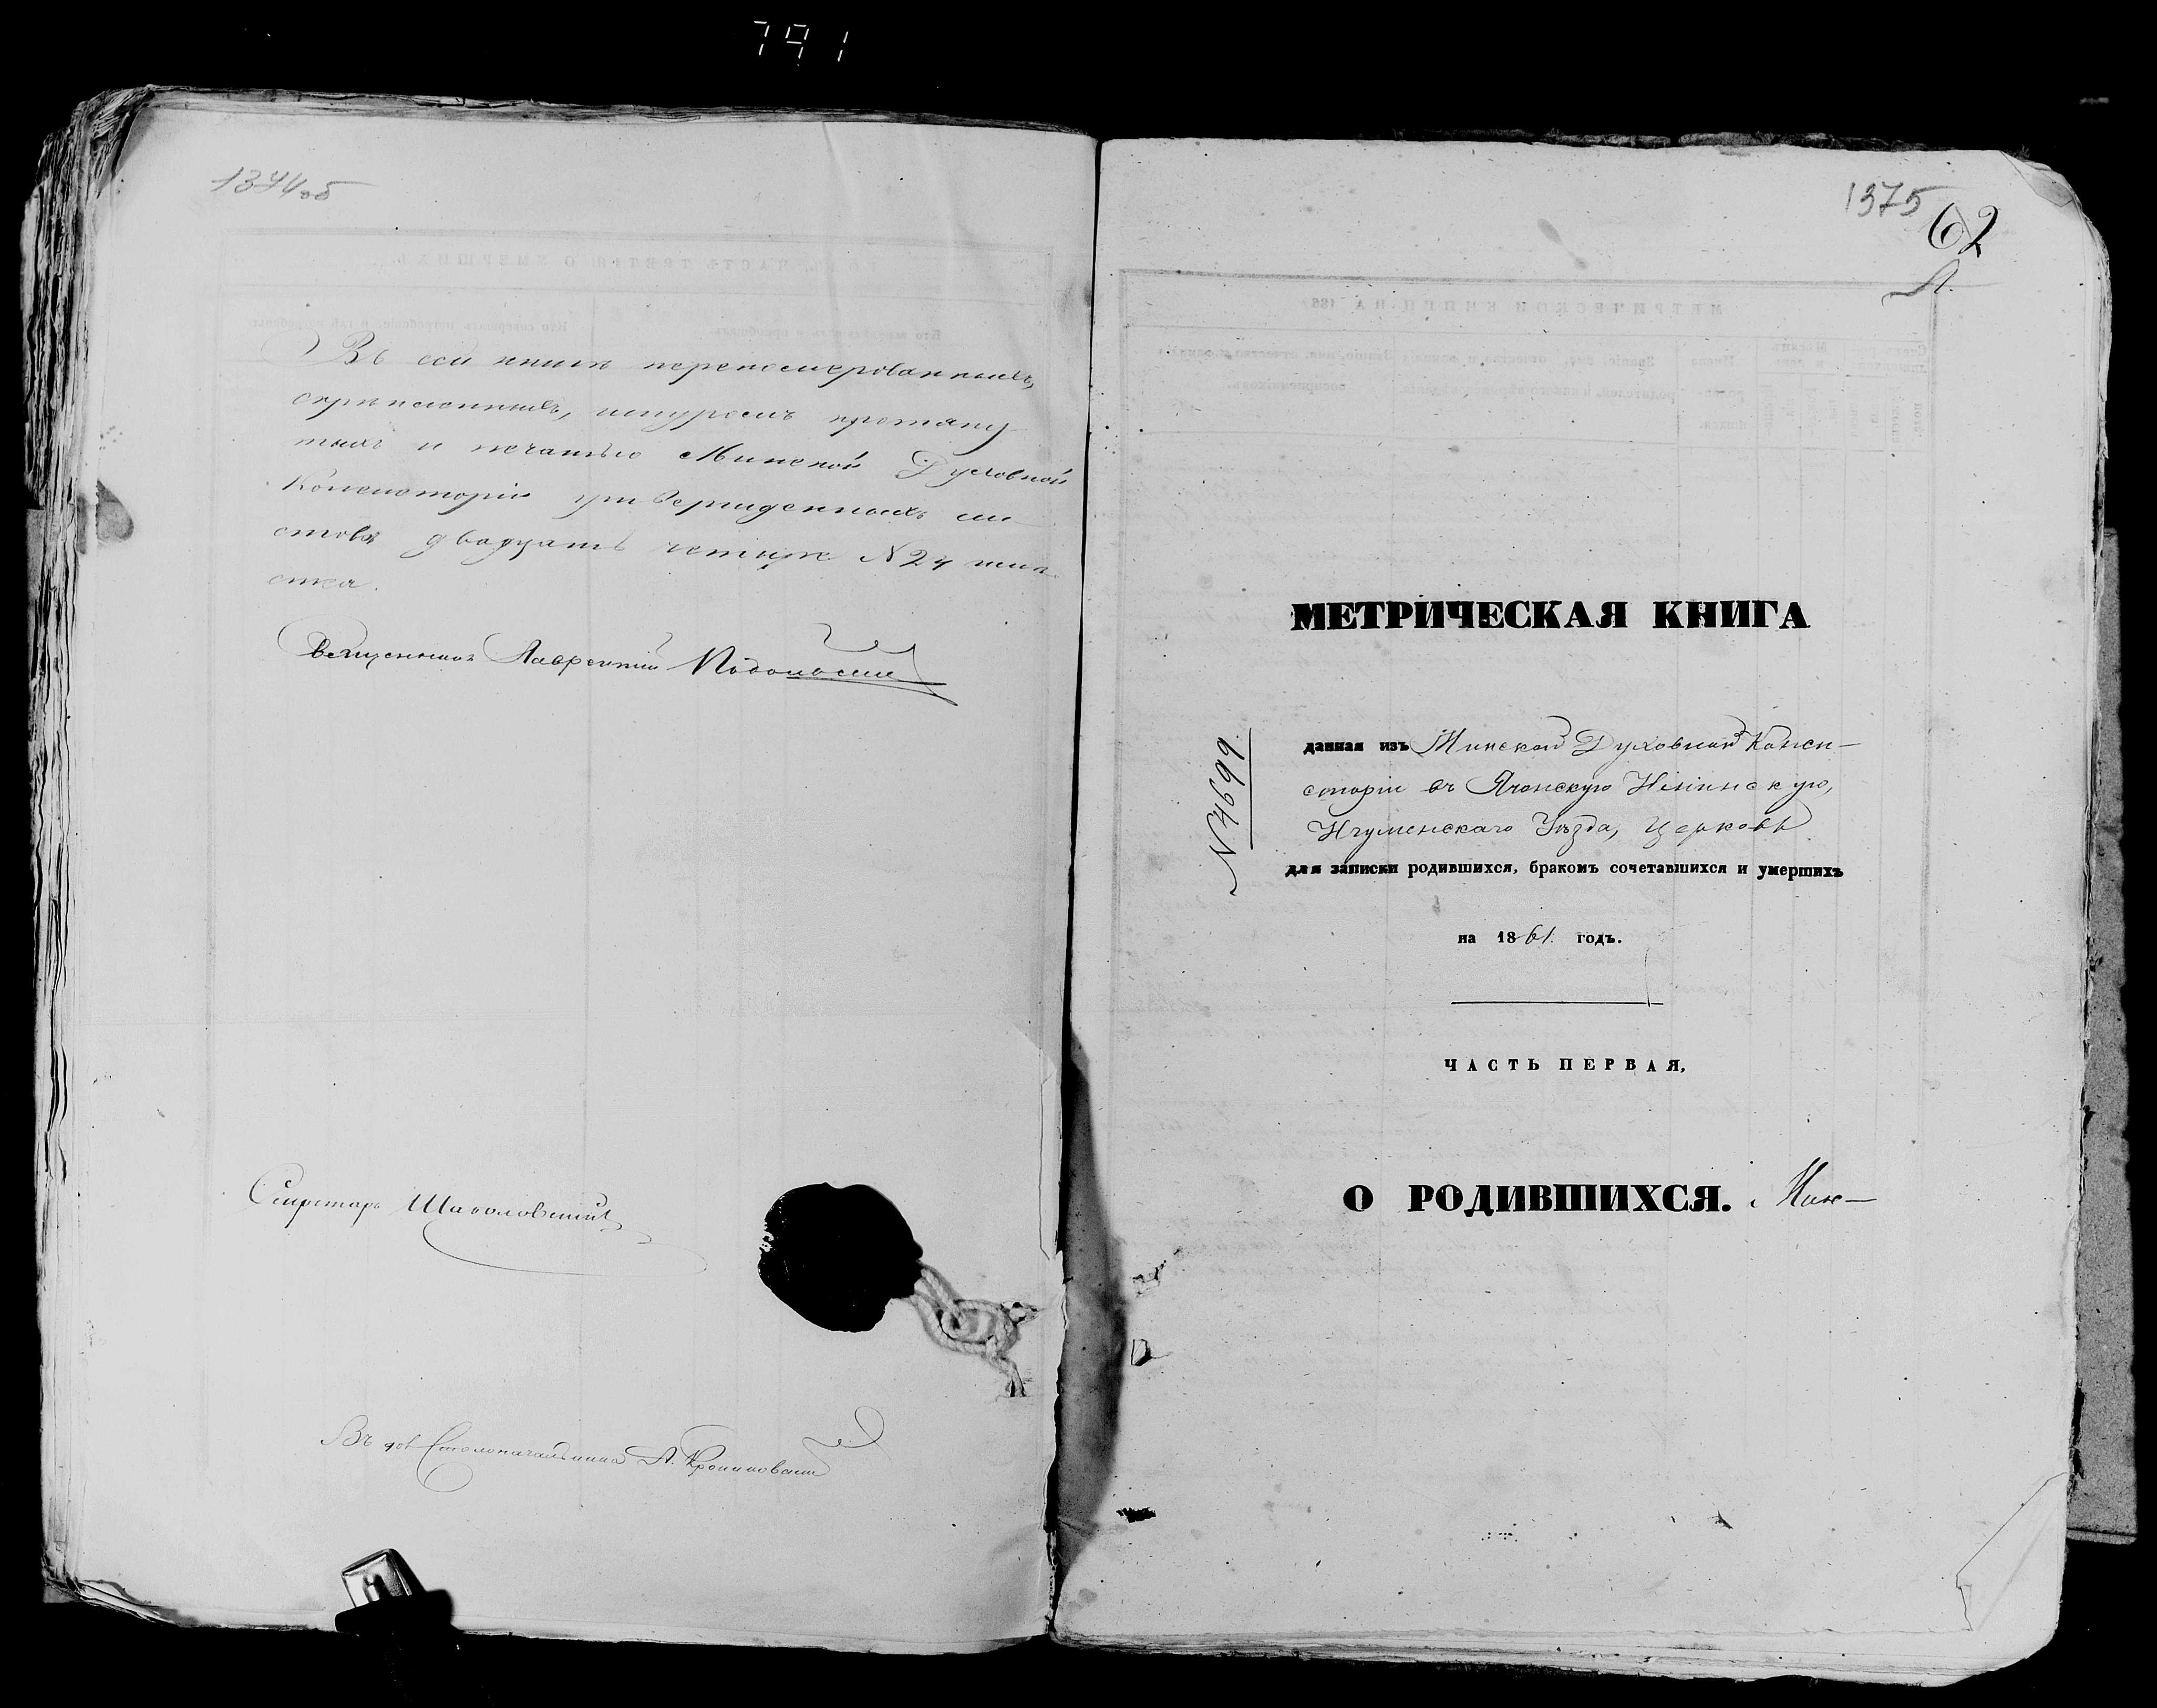 791
1374об
Въ сей книгѣ перенумерованныхъ,
скрѣпленныхъ, шнуромъ протяну
тыхъ и печатью Минской Духовной
Консисторіи утвержденныхъ ли
стовъ двадцать четыре N 24 ли
стка.
Священникъ Лаврентій
Секретарь
Въ дол. Столоначальника А.
1375
62
МЕТРИЧЕСКАЯ КНИГА
N 4699
данная изъ Минской Духовной Конси-
сторіи въ Ячонскую Ильинскую,
Игуменскаго Уѣзда, Церковь
для записки родившихся, бракомъ сочетавшихся и умершихъ
на 1861. годъ.
ЧАСТЬ ПЕРВАЯ,
О РОДИВШИХСЯ. Мин-